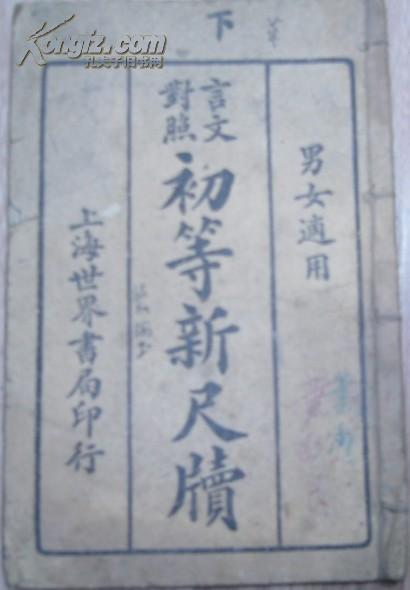 下
男女適用
言文
對照
初等新尺牘
上海世界書局印行
Kongfz.com
孔夫子旧书网